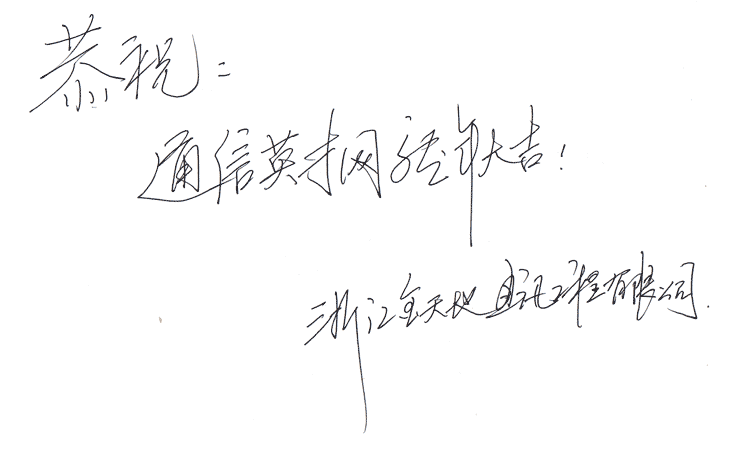 恭祝：
通信英才网龙年大吉！
浙江金天地通讯工程有限公司.